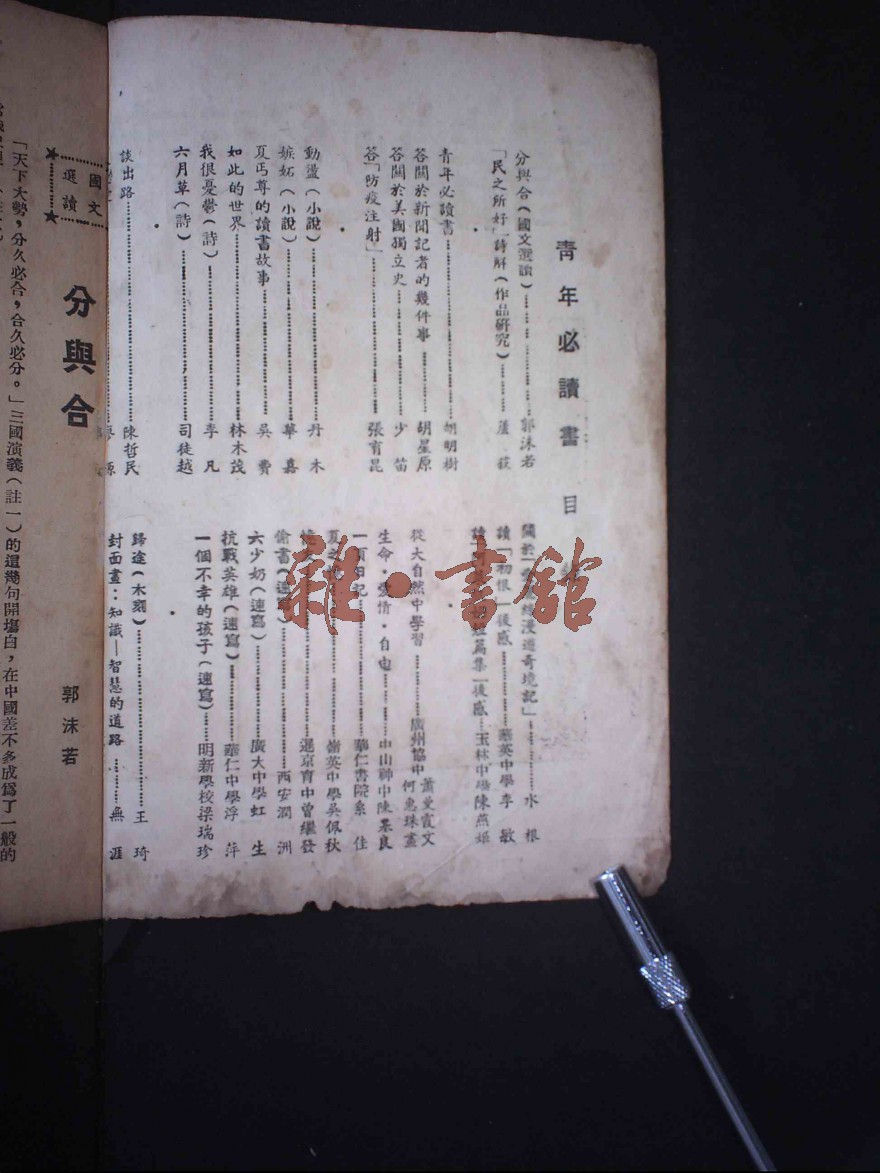 青年必讀書目
分與合（國文選讀）……郭沫若
「民之所好」詩解（作品研究）……蘆荻
青年必讀書……胡明樹
答關於新聞記者的幾件事……胡星原
答關於美國獨立史……少苗
答「防疫注射」……張育昆
動盪（小說）……丹木
嫉妬（小說）……華嘉
夏丏尊的讀書故事……吳費
如此的世界……林木茂
我很憂鬱（詩）……李凡
六月草（詩）……司徒越
談出路……陳哲民
漫遊奇境記」……水根
讀「初恨」後感……華英中學李敏
短篇集」後感……玉林中學陳燕嫘
從大自然中學習……廣州協中蕭曼霞文何惠珠畫
生命·愛情·自由……中山師中陳
一頁日記……華仁書院系佳
夏之……嶺英中學吳佩秋
遲京育中曾繼發
偷書（速寫）……西安澗洲
六少奶（速寫）……廣大中學虹生
抗戰英雄（速寫）……華仁中學浮萍
一個不幸的孩子（速寫）……明新學校梁瑞珍
歸途（木刻）……王琦
封面畫：知識—智慧的道路……無涯
雜·書館
國文選讀
分與合
郭沫若
「天下大勢，分久必合，合久必分。」三國演義（註一）的這幾句開場白，在中國差不多成爲了一般的